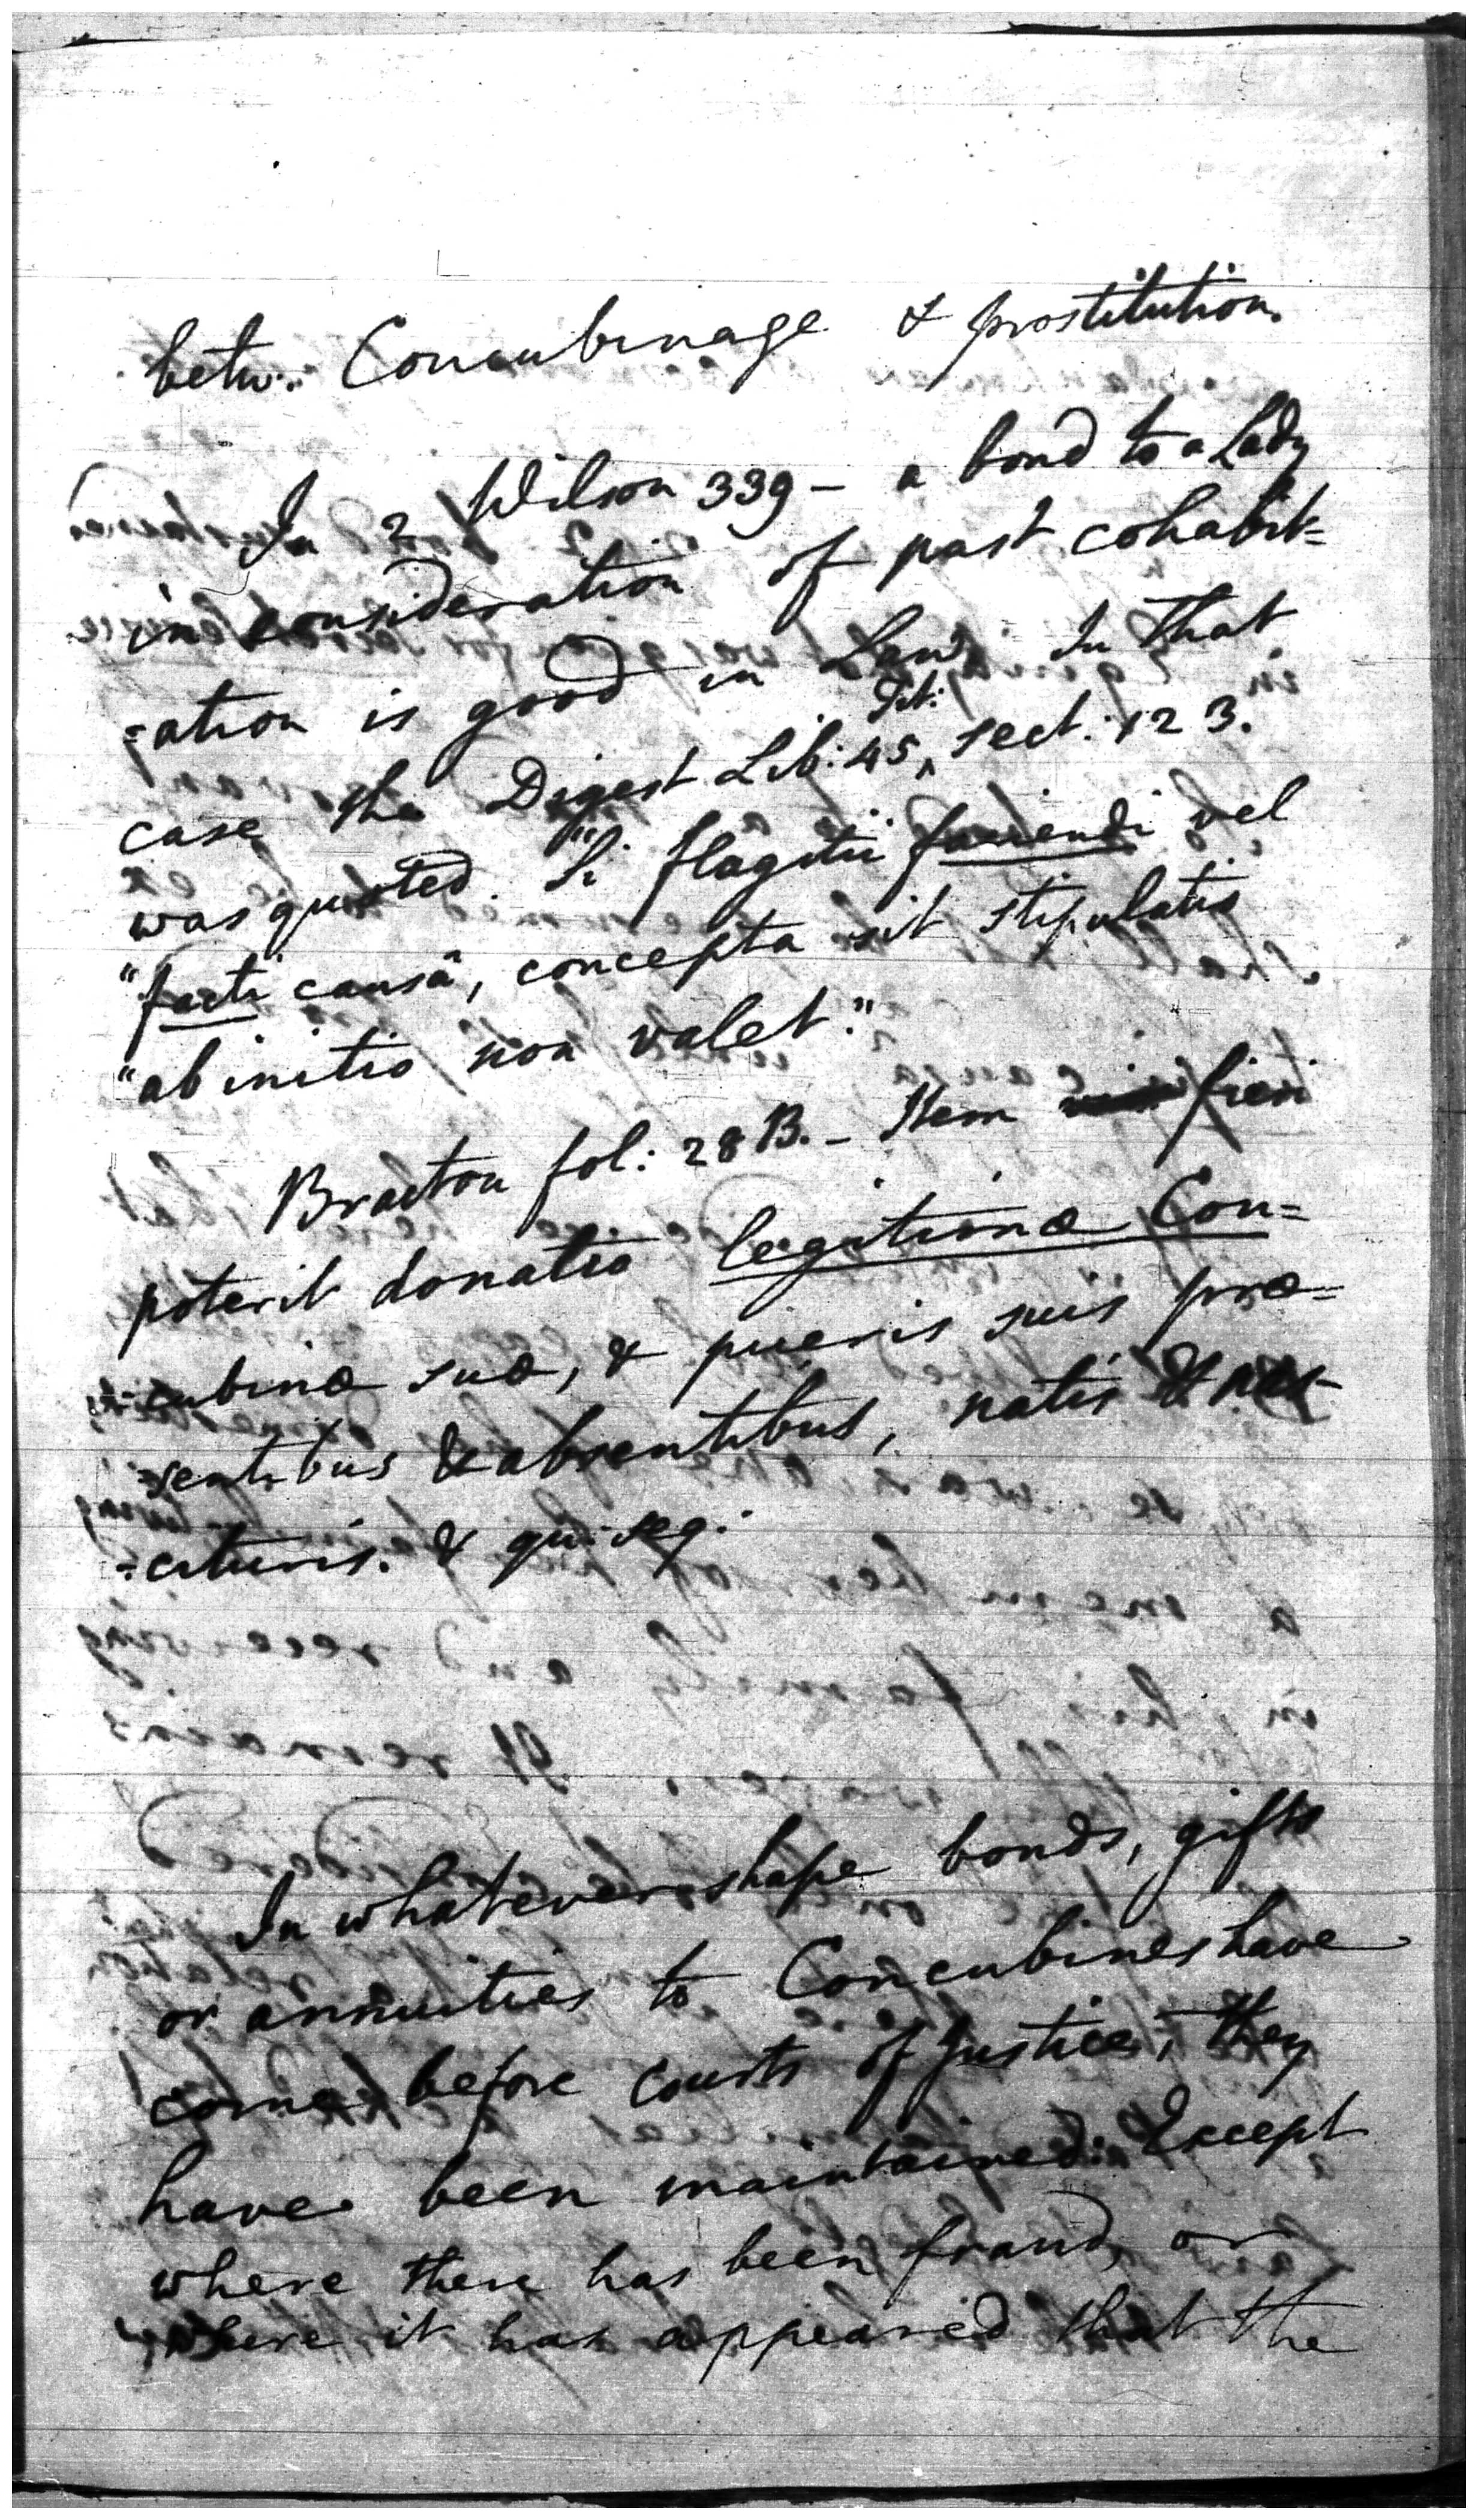 betw:. Concubinage & prostitution.
In 2 Wilson 339 – a bond to a Lady
in consideration of past cohabit=
=ation is good in Law. In that
case the Digest Lib: 45, Tit: sect: 123.
was quoted. "Si flagitii faciendi vel
"facti causâ, concepta sit stipulatio
"ab initio non valet."
Bracton fol: 28 B. – Item fieri
poterit donatio legitimæ Con=
=cubinæ suæ, & pueris suis præ=
=sentibus & absentibus, natis & nas-
=cituris. & qu: seq:
In whatever shape bonds, gifts
or annuities to Concubines have
come before Courts of Justice, they
have been maintained: Except
where there has been fraud, or
where it has appeared that the